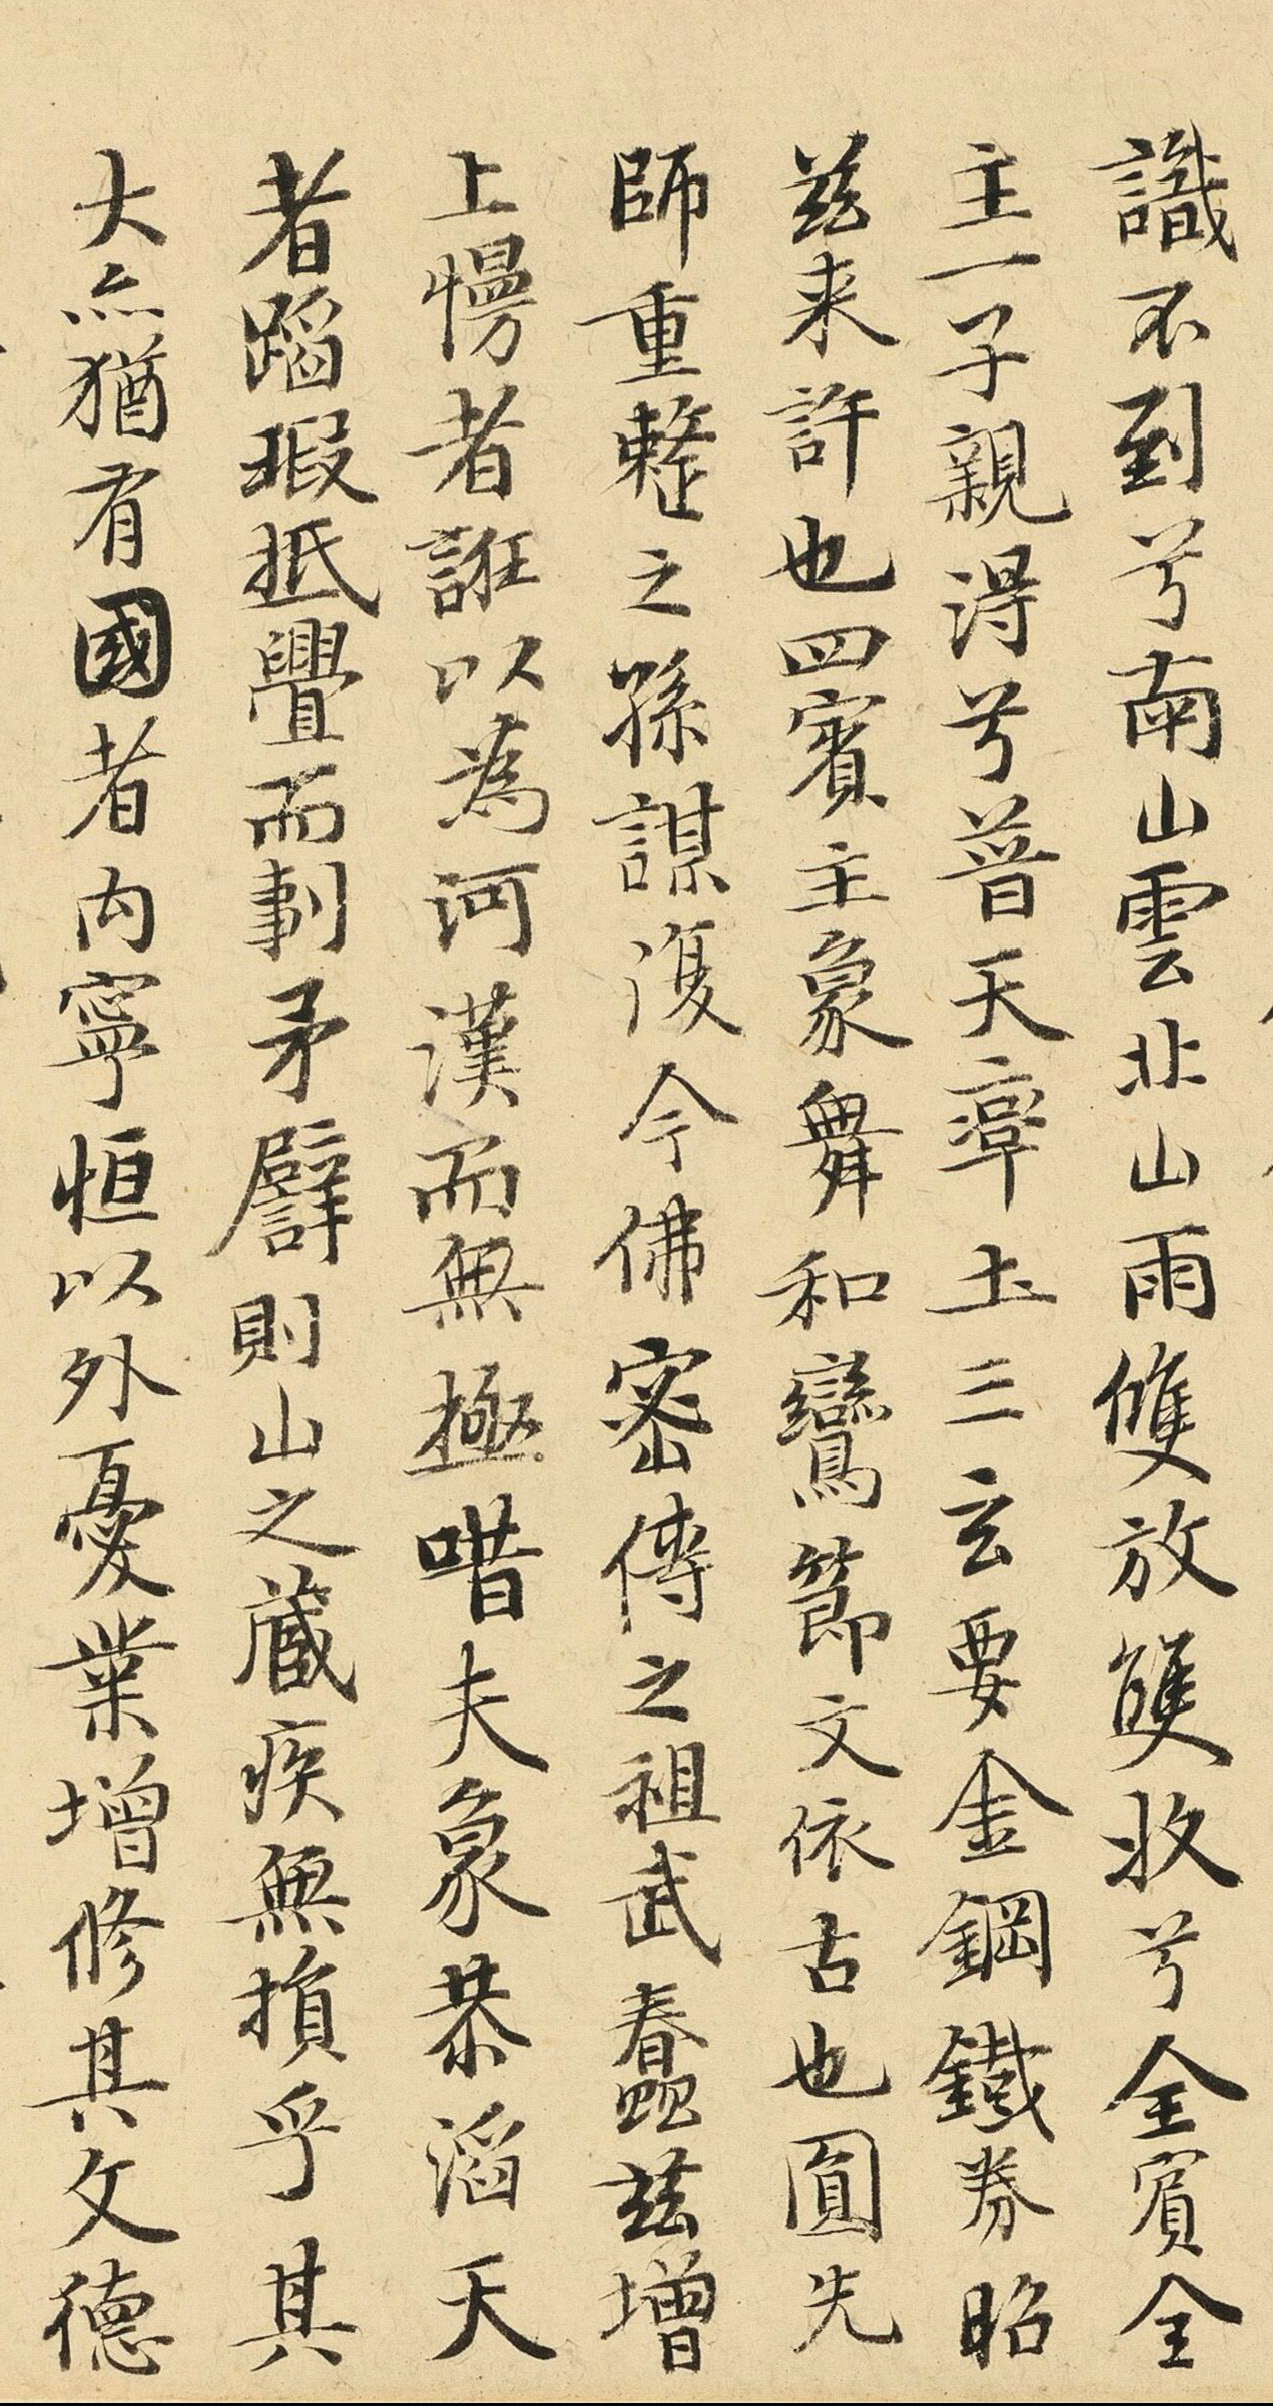 識不到兮南山雲北山雨雙放雙收兮全賓全
主一子親得兮普天率土三玄要金鋼鐵券昭
茲来許也四賓主象舞和鸞節文依古也圓先
師重整之孫謀復今佛密傳之祖武蠢茲增
上慢者誑以為河漢而無極唶夫象恭滔天
者蹈瑕抵舋而剚矛譬則山之藏疾無損乎其
大然猶有國者內寧恒以外憂業增修其文德